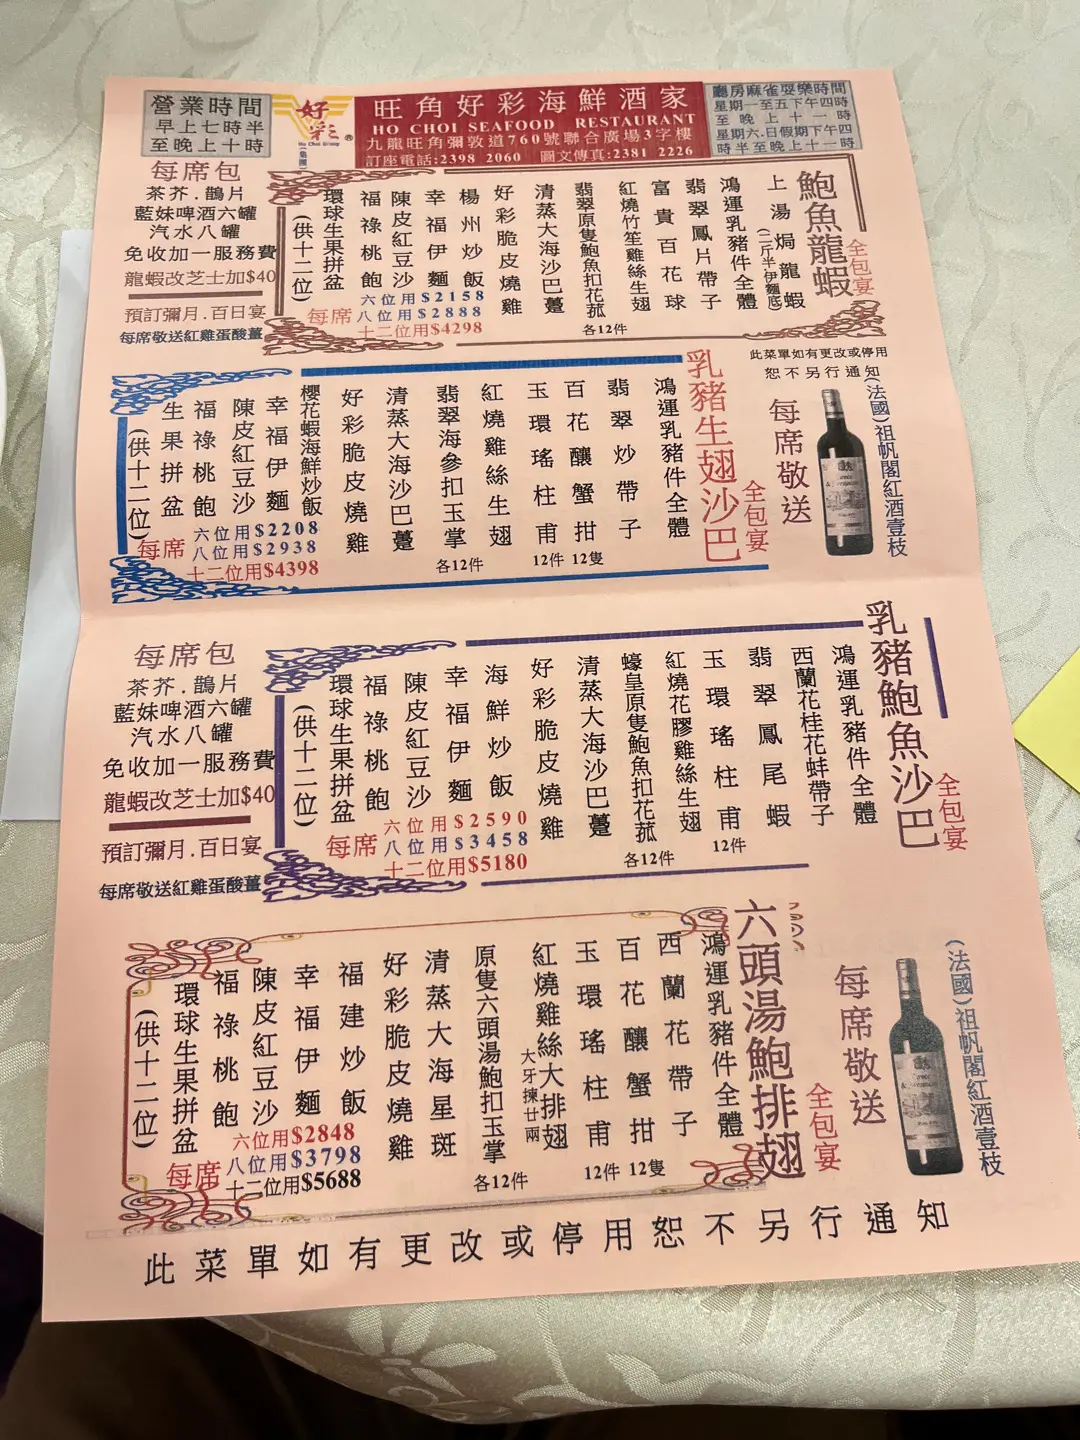 營業時間
早上七時半
至晚上十時
好彩
Ho Choi Group
(集團)
旺角好彩海鮮酒家
HO CHOI SEAFOOD RESTAURANT
九龍旺角彌敦道760號聯合廣場3字樓
訂座電話:2398 2060 圖文傳真:2381 2226
廳房麻雀耍樂時間
星期一至五下午四時
至晚上十一時
星期六.日假期下午四
時半至晚上十一時
每席包
茶芥.鵲片
藍妹啤酒六罐
汽水八罐
免收加一服務費
龍蝦改芝士加$40
預訂彌月.百日宴
每席敬送紅雞蛋酸薑
鮑魚龍蝦
全包宴
上湯焗龍蝦
(二斤半.伊麵底)
鴻運乳豬件全體
翡翠鳳片帶子
富貴百花球
紅燒竹笙雞絲生翅
翡翠原隻鮑魚扣花菰
各12件
清蒸大海沙巴躉
好彩脆皮燒雞
楊州炒飯
幸福伊麵
陳皮紅豆沙
福祿桃飽
環球生果拼盆
(供十二位)
每席
六位用$2158
八位用$2888
十二位用$4298
此菜單如有更改或停用
恕不另行通知
乳豬生翅沙巴
全包宴
鴻運乳豬件全體
翡翠炒帶子
百花釀蟹拑
12隻
玉環瑤柱甫
12件
紅燒雞絲生翅
翡翠海參扣玉掌
各12件
清蒸大海沙巴躉
好彩脆皮燒雞
櫻花蝦海鮮炒飯
幸福伊麵
陳皮紅豆沙
福祿桃飽
生果拼盆
(供十二位)
每席
六位用$2208
八位用$2938
十二位用$4398
每席敬送
(法國)祖帆閣紅酒壹枝
每席包
茶芥.鵲片
藍妹啤酒六罐
汽水八罐
免收加一服務費
龍蝦改芝士加$40
預訂彌月.百日宴
每席敬送紅雞蛋酸薑
乳豬鮑魚沙巴
全包宴
鴻運乳豬件全體
西蘭花桂花蚌帶子
翡翠鳳尾蝦
玉環瑤柱甫
12件
紅燒花膠雞絲生翅
蠔皇原隻鮑魚扣花菰
各12件
清蒸大海沙巴躉
好彩脆皮燒雞
海鮮炒飯
幸福伊麵
陳皮紅豆沙
福祿桃飽
環球生果拼盆
(供十二位)
每席
六位用$2590
八位用$3458
十二位用$5180
六頭湯鮑排翅
全包宴
鴻運乳豬件全體
西蘭花帶子
百花釀蟹拑
12隻
玉環瑤柱甫
12件
紅燒雞絲大排翅
大牙揀廿兩
原隻六頭湯鮑扣玉掌
各12件
清蒸大海星斑
好彩脆皮燒雞
福建炒飯
幸福伊麵
陳皮紅豆沙
福祿桃飽
環球生果拼盆
(供十二位)
每席
六位用$2848
八位用$3798
十二位用$5688
每席敬送
(法國)祖帆閣紅酒壹枝
此菜單如有更改或停用恕不另行通知